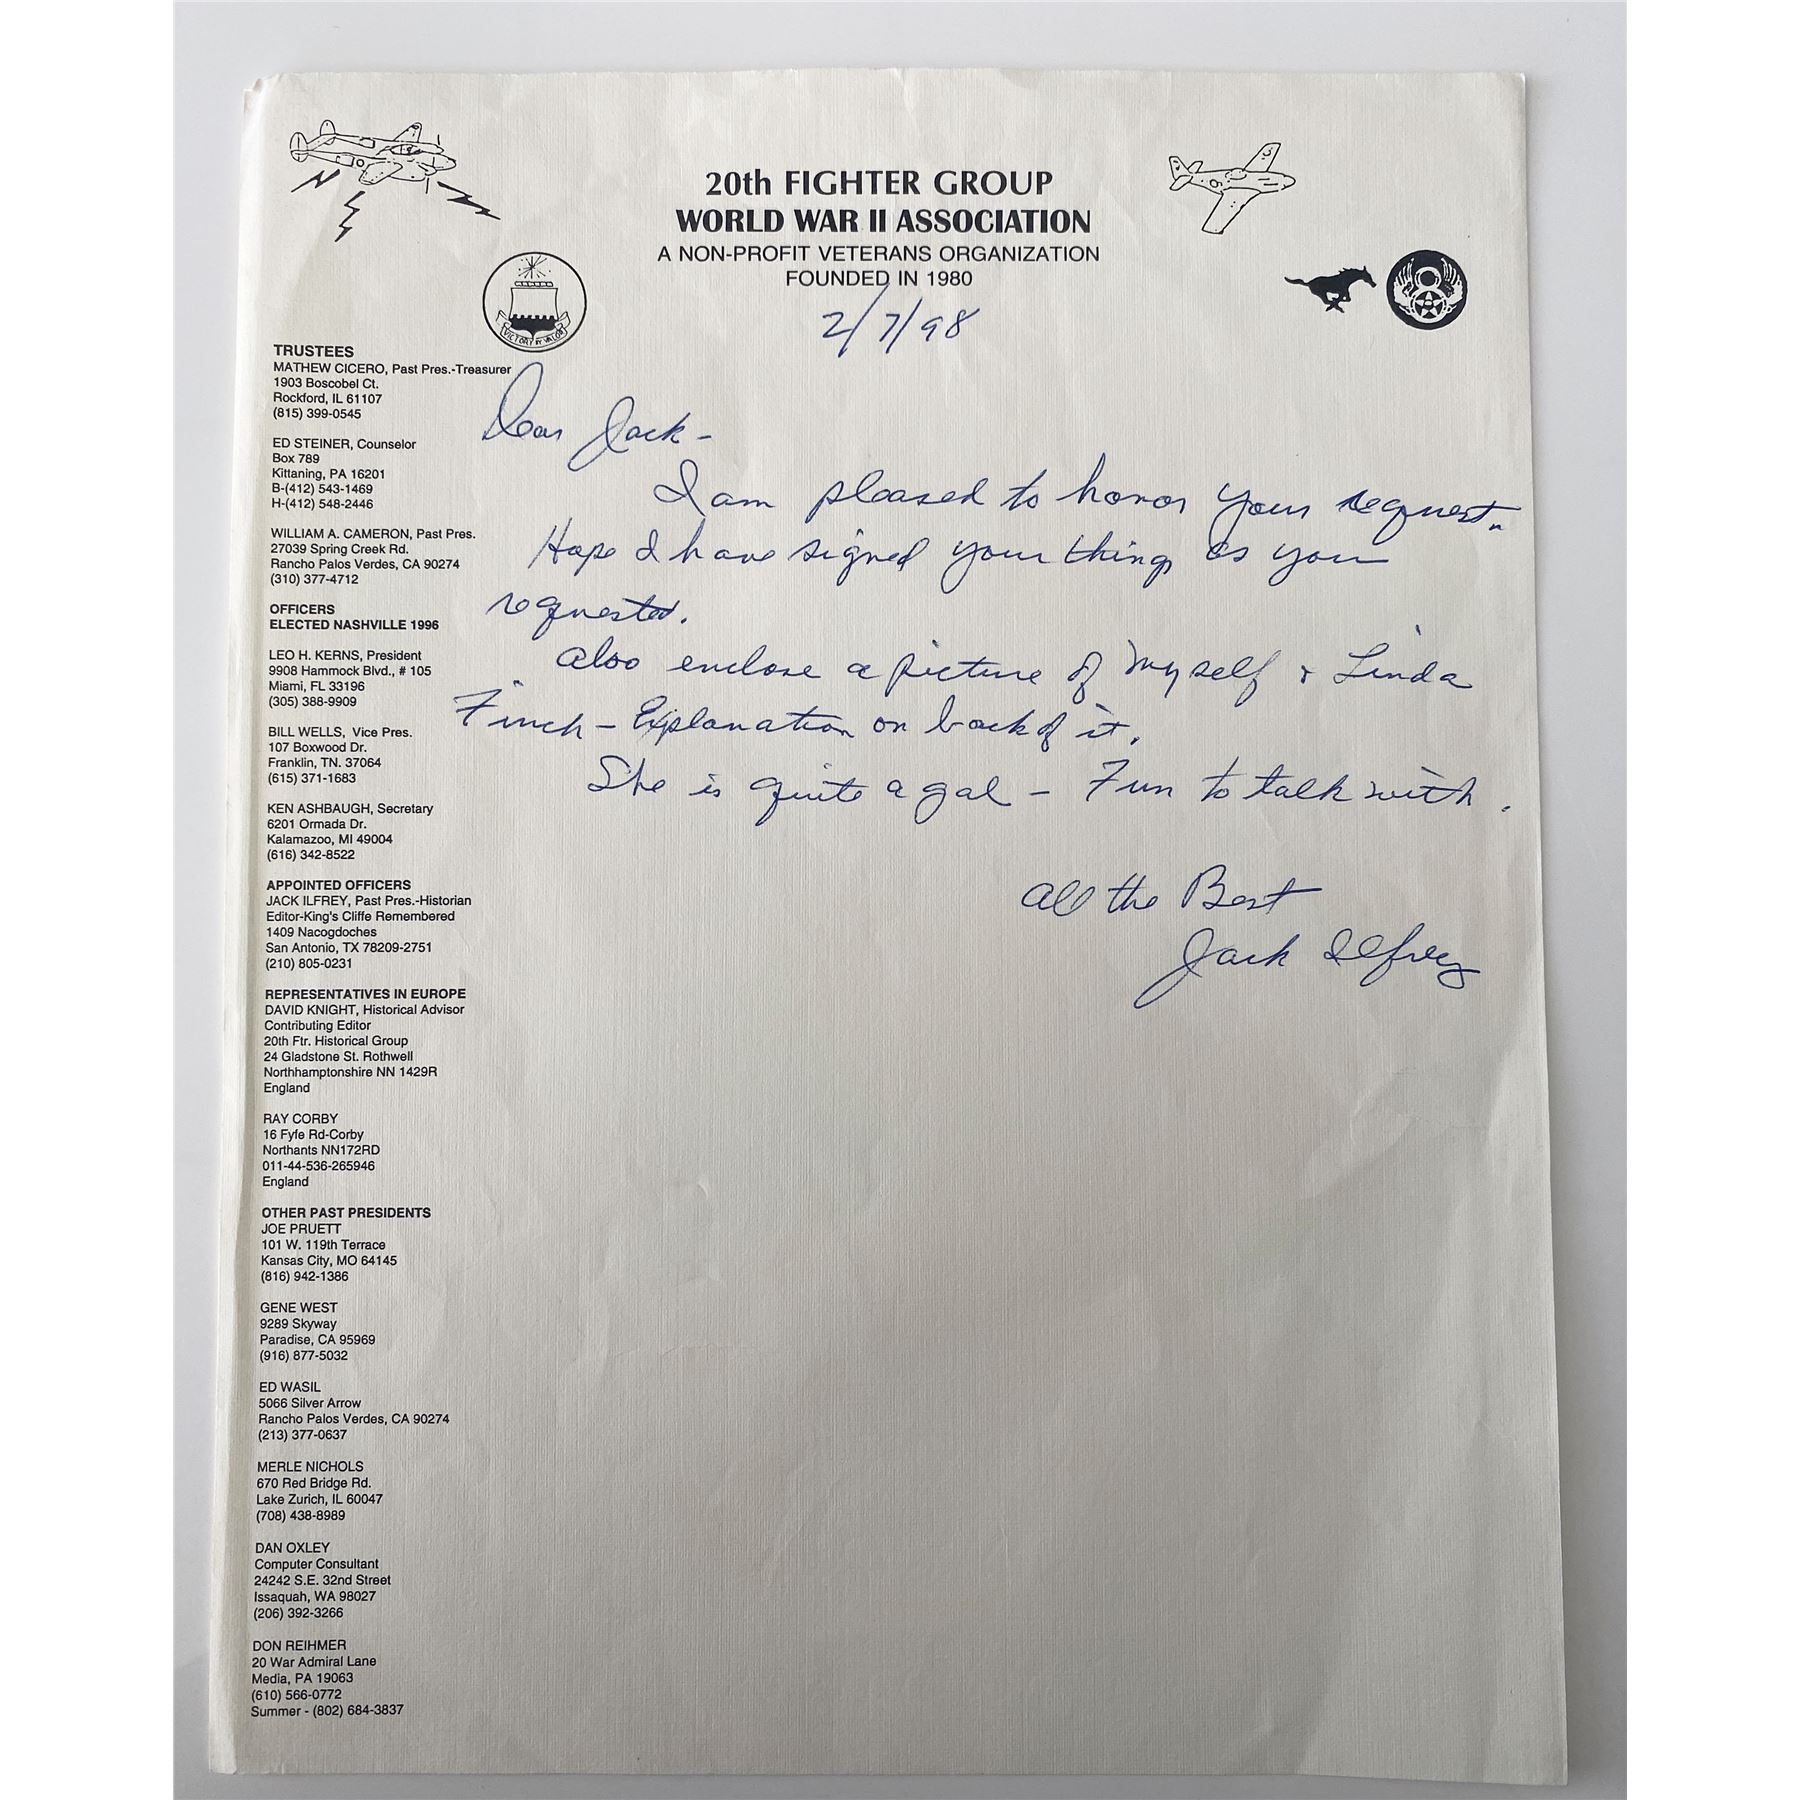 20th FIGHTER GROUP
WORLD WAR II ASSOCIATION
A NON-PROFIT VETERANS ORGANIZATION
FOUNDED IN 1980
VICTORY BY VALOR
2/7/98
TRUSTEES
MATHEW CICERO, Past Pres.-Treasurer
1903 Boscobel Ct.
Rockford, IL 61107
(815) 399-0545
ED STEINER, Counselor
Box 789
Kittaning, PA 16201
B-(412) 543-1469
H-(412) 548-2446
WILLIAM A. CAMERON, Past Pres.
27039 Spring Creek Rd.
Rancho Palos Verdes, CA 90274
(310) 377-4712
OFFICERS
ELECTED NASHVILLE 1996
LEO H. KERNS, President
9908 Hammock Blvd., # 105
Miami, FL 33196
(305) 388-9909
BILL WELLS, Vice Pres.
107 Boxwood Dr.
Franklin, TN. 37064
(615) 371-1683
KEN ASHBAUGH, Secretary
6201 Ormada Dr.
Kalamazoo, MI 49004
(616) 342-8522
APPOINTED OFFICERS
JACK ILFREY, Past Pres.-Historian
Editor-King's Cliffe Remembered
1409 Nacogdoches
San Antonio, TX 78209-2751
(210) 805-0231
REPRESENTATIVES IN EUROPE
DAVID KNIGHT, Historical Advisor
Contributing Editor
20th Ftr. Historical Group
24 Gladstone St. Rothwell
Northhamptonshire NN 1429R
England
RAY CORBY
16 Fyfe Rd-Corby
Northants NN172RD
011-44-536-265946
England
OTHER PAST PRESIDENTS
JOE PRUETT
101 W. 119th Terrace
Kansas City, MO 64145
(816) 942-1386
GENE WEST
9289 Skyway
Paradise, CA 95969
(916) 877-5032
ED WASIL
5066 Silver Arrow
Rancho Palos Verdes, CA 90274
(213) 377-0637
MERLE NICHOLS
670 Red Bridge Rd.
Lake Zurich, IL 60047
(708) 438-8989
DAN OXLEY
Computer Consultant
24242 S.E. 32nd Street
Issaquah, WA 98027
(206) 392-3266
DON REIHMER
20 War Admiral Lane
Media, PA 19063
(610) 566-0772
Summer - (802) 684-3837
Dear Jack -
I am pleased to honor your request.
Hope I have signed your things as you
requested.
Also enclose a picture of myself & Linda
Finch - Explanation on back of it.
She is quite a gal - Fun to talk with.
All the Best
Jack Ilfrey